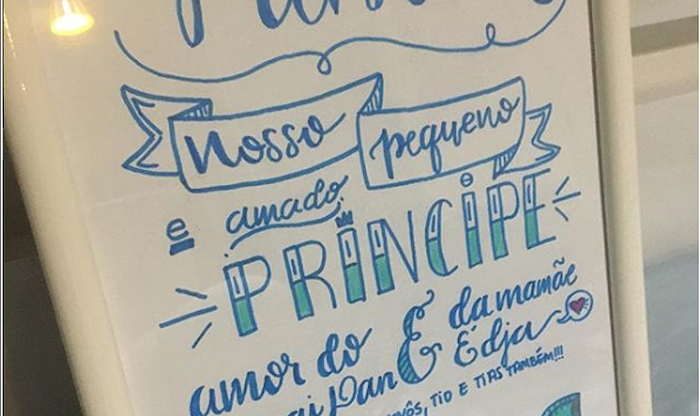 nosso pequeno
e amado
PRINCIPE
amor do & da mamãe
Dan Edja
TIO E TIAS TAMBÉM!!!